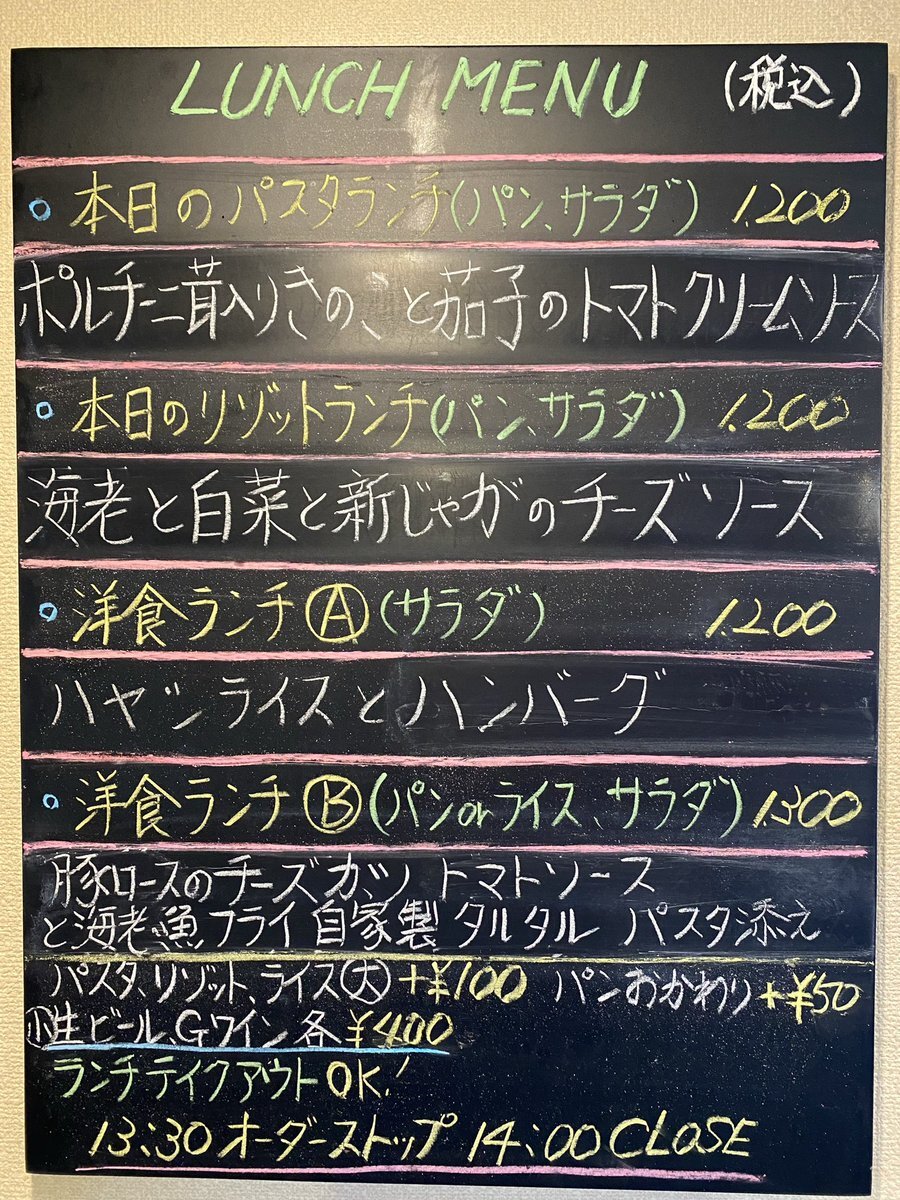 LUNCH MENU (税込)
本日のパスタランチ(パン、サラダ) 1.200
ポルチーニ茸入りきのこと茄子のトマトクリームソース
本日のリゾットランチ(パン、サラダ) 1.200
海老と白菜と新じゃがのチーズソース
洋食ランチⒶ(サラダ) 1.200
ハヤシライスとハンバーグ
洋食ランチⒷ(パンorライス、サラダ) 1.300
豚ロースのチーズカツ トマトソース
と海老、魚フライ 自家製 タルタル パスタ添え
パスタ、リゾット、ライス(大)+¥100 パンおかわり+¥50
小生ビール、Gワイン各¥400
ランチテイクアウトOK!
13:30オーダーストップ 14:00CLOSE